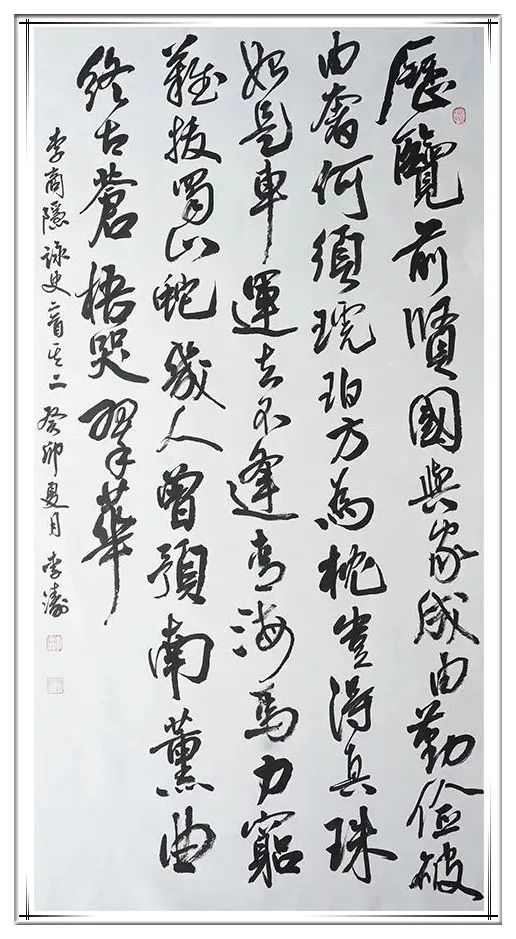 歷覽前賢國與家成由勤儉破
由奢何須琥珀方為枕豈得真珠
始是車運去不逢青海馬力窮
難拔蜀山蛇幾人曾預南薰曲
終古蒼梧哭翠華
李商隱詠史二首其二 癸卯夏月 李濤